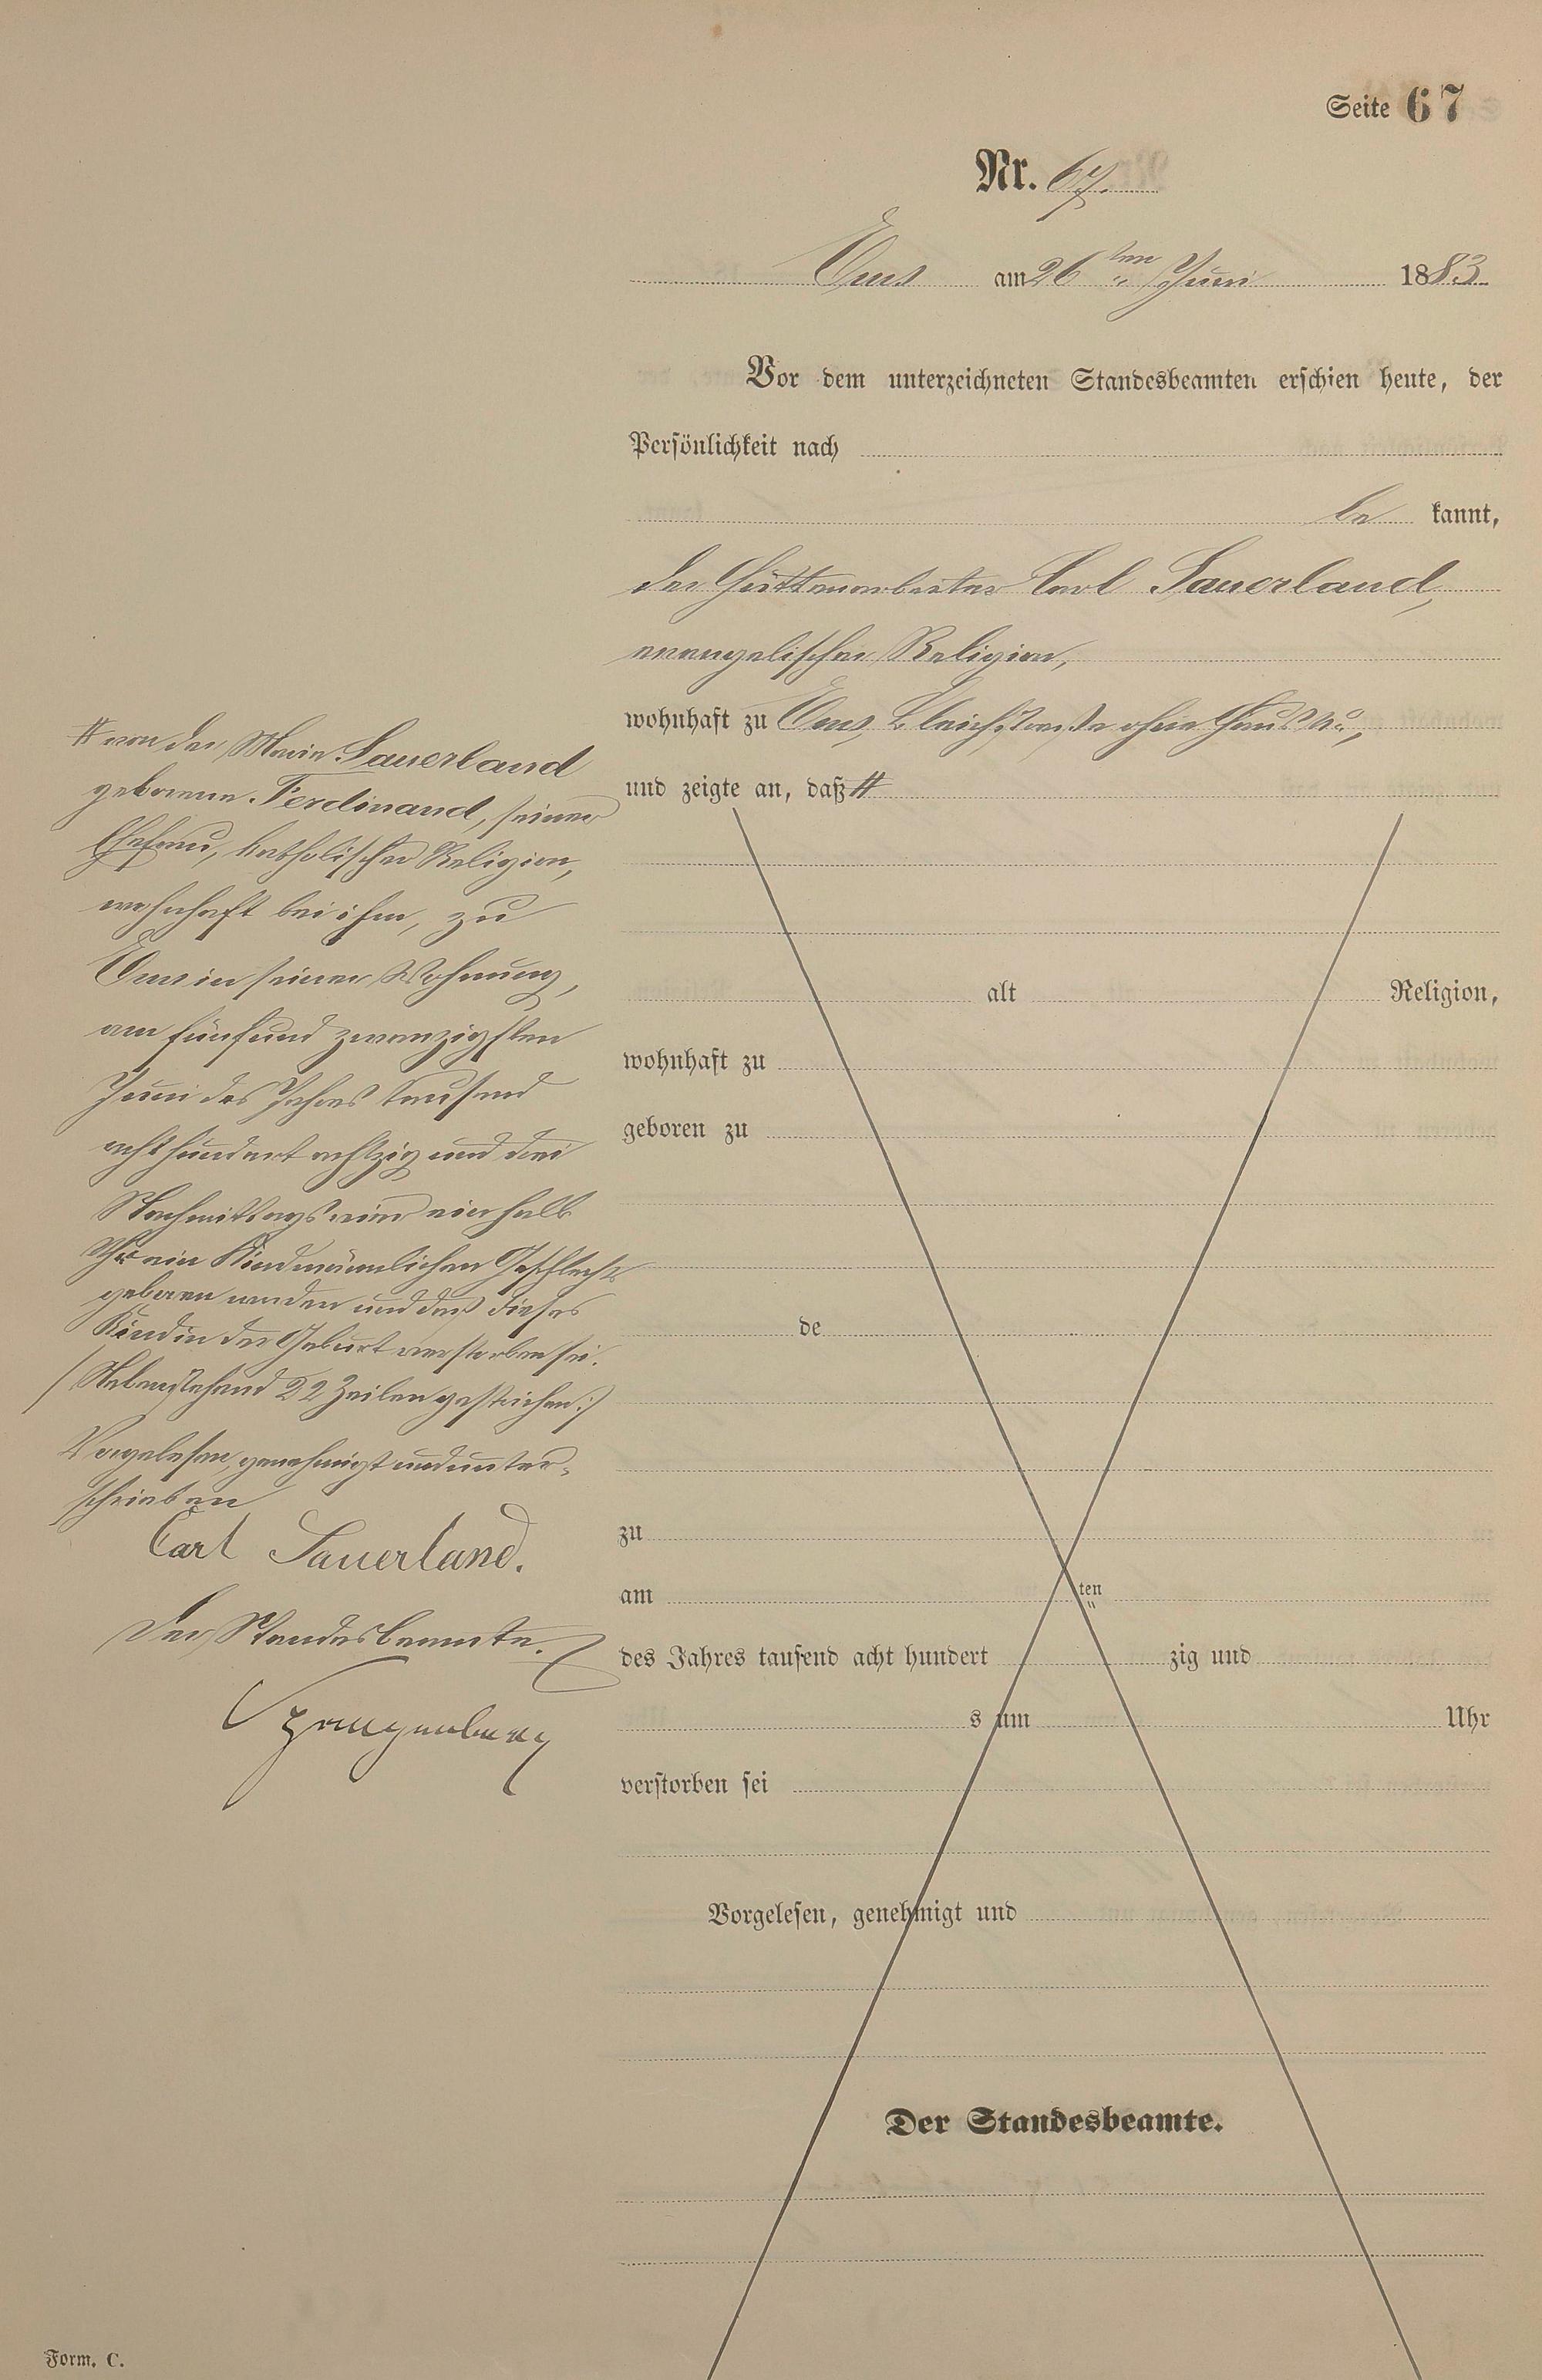 Seite 67
Nr. 67.
Ems am 26 ten Juni 1883
Vor dem unterzeichneten Standesbeamten erschien heute, der
Persönlichkeit nach
be kannt,
der Hüttenarbeiter Carl Sauerland,
evangelischer Religion,
wohnhaft zu Ems, Bleichstraße ohne Haus No,
und zeigte an, daß #
# von der Marie Sauerland
geborenen Ferdinand, seiner
Ehefrau, katholischer Religion,
wohnhaft bei ihm, zu
Ems in seiner Wohnung,
am fünfund zwanzigsten
Juni des Jahres tausend
achthundert achtzig und drei
Nachmittags um vierhalb
Uhr ein Kind männlichen Geschlechts
geboren worden und daß dieses
Kind in der Geburt verstorben sei.
/ Nebenstehend 22 Zeilen gestrichen :/
Vorgelesen, genehmigt und unter-
schrieben
Carl Sauerland.
Der Standesbeamte.
Spangenberg
alt Religion,
wohnhaft zu
geboren zu
de
zu
am ten
des Jahres tausend acht hundert zig und
s um Uhr
verstorben sei
Vorgelesen, genehmigt und
Der Standesbeamte.
Form. C.